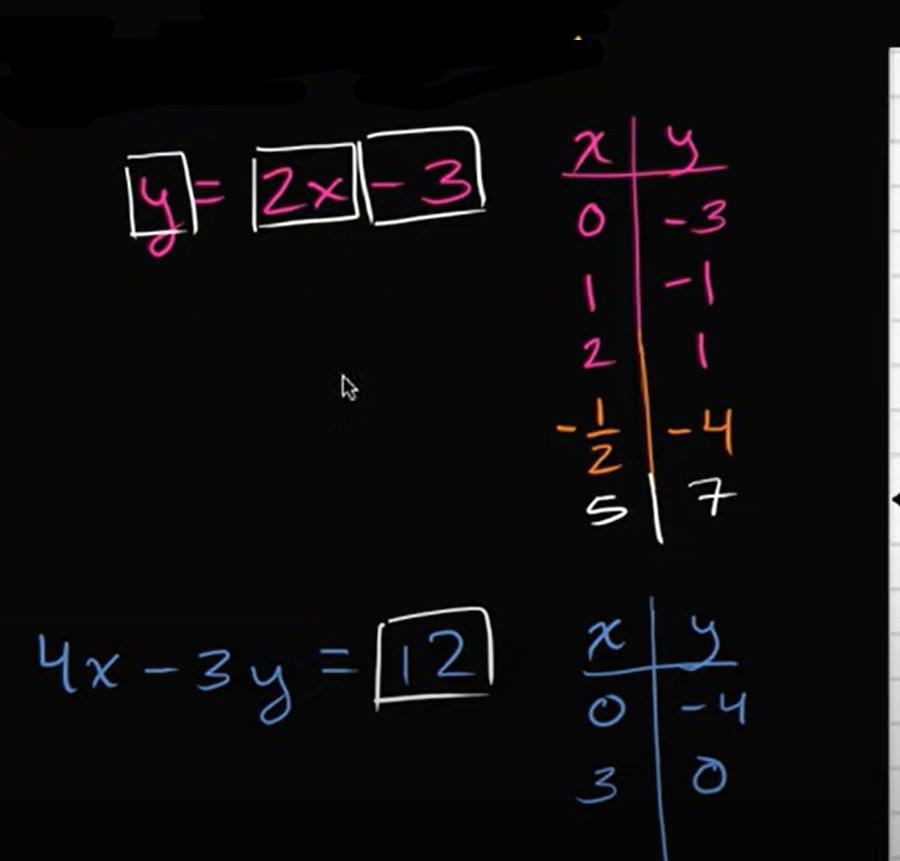 y = 2x - 3
x y
0 -3
1 -1
2 1
-1/2 -4
5 7
4x - 3y = 12
x y
0 -4
3 0